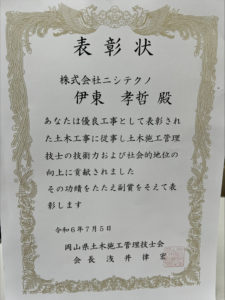 表彰状
株式会社ニシテクノ
伊東 孝哲 殿
あなたは優良工事として表彰され
た土木工事に従事し土木施工管理
技士の技術力および社会的地位の
向上に貢献されました
その功績をたたえ副賞をそえて表
彰します
令和6年7月5日
岡山県土木施工管理技士会
会長 浅井律宏